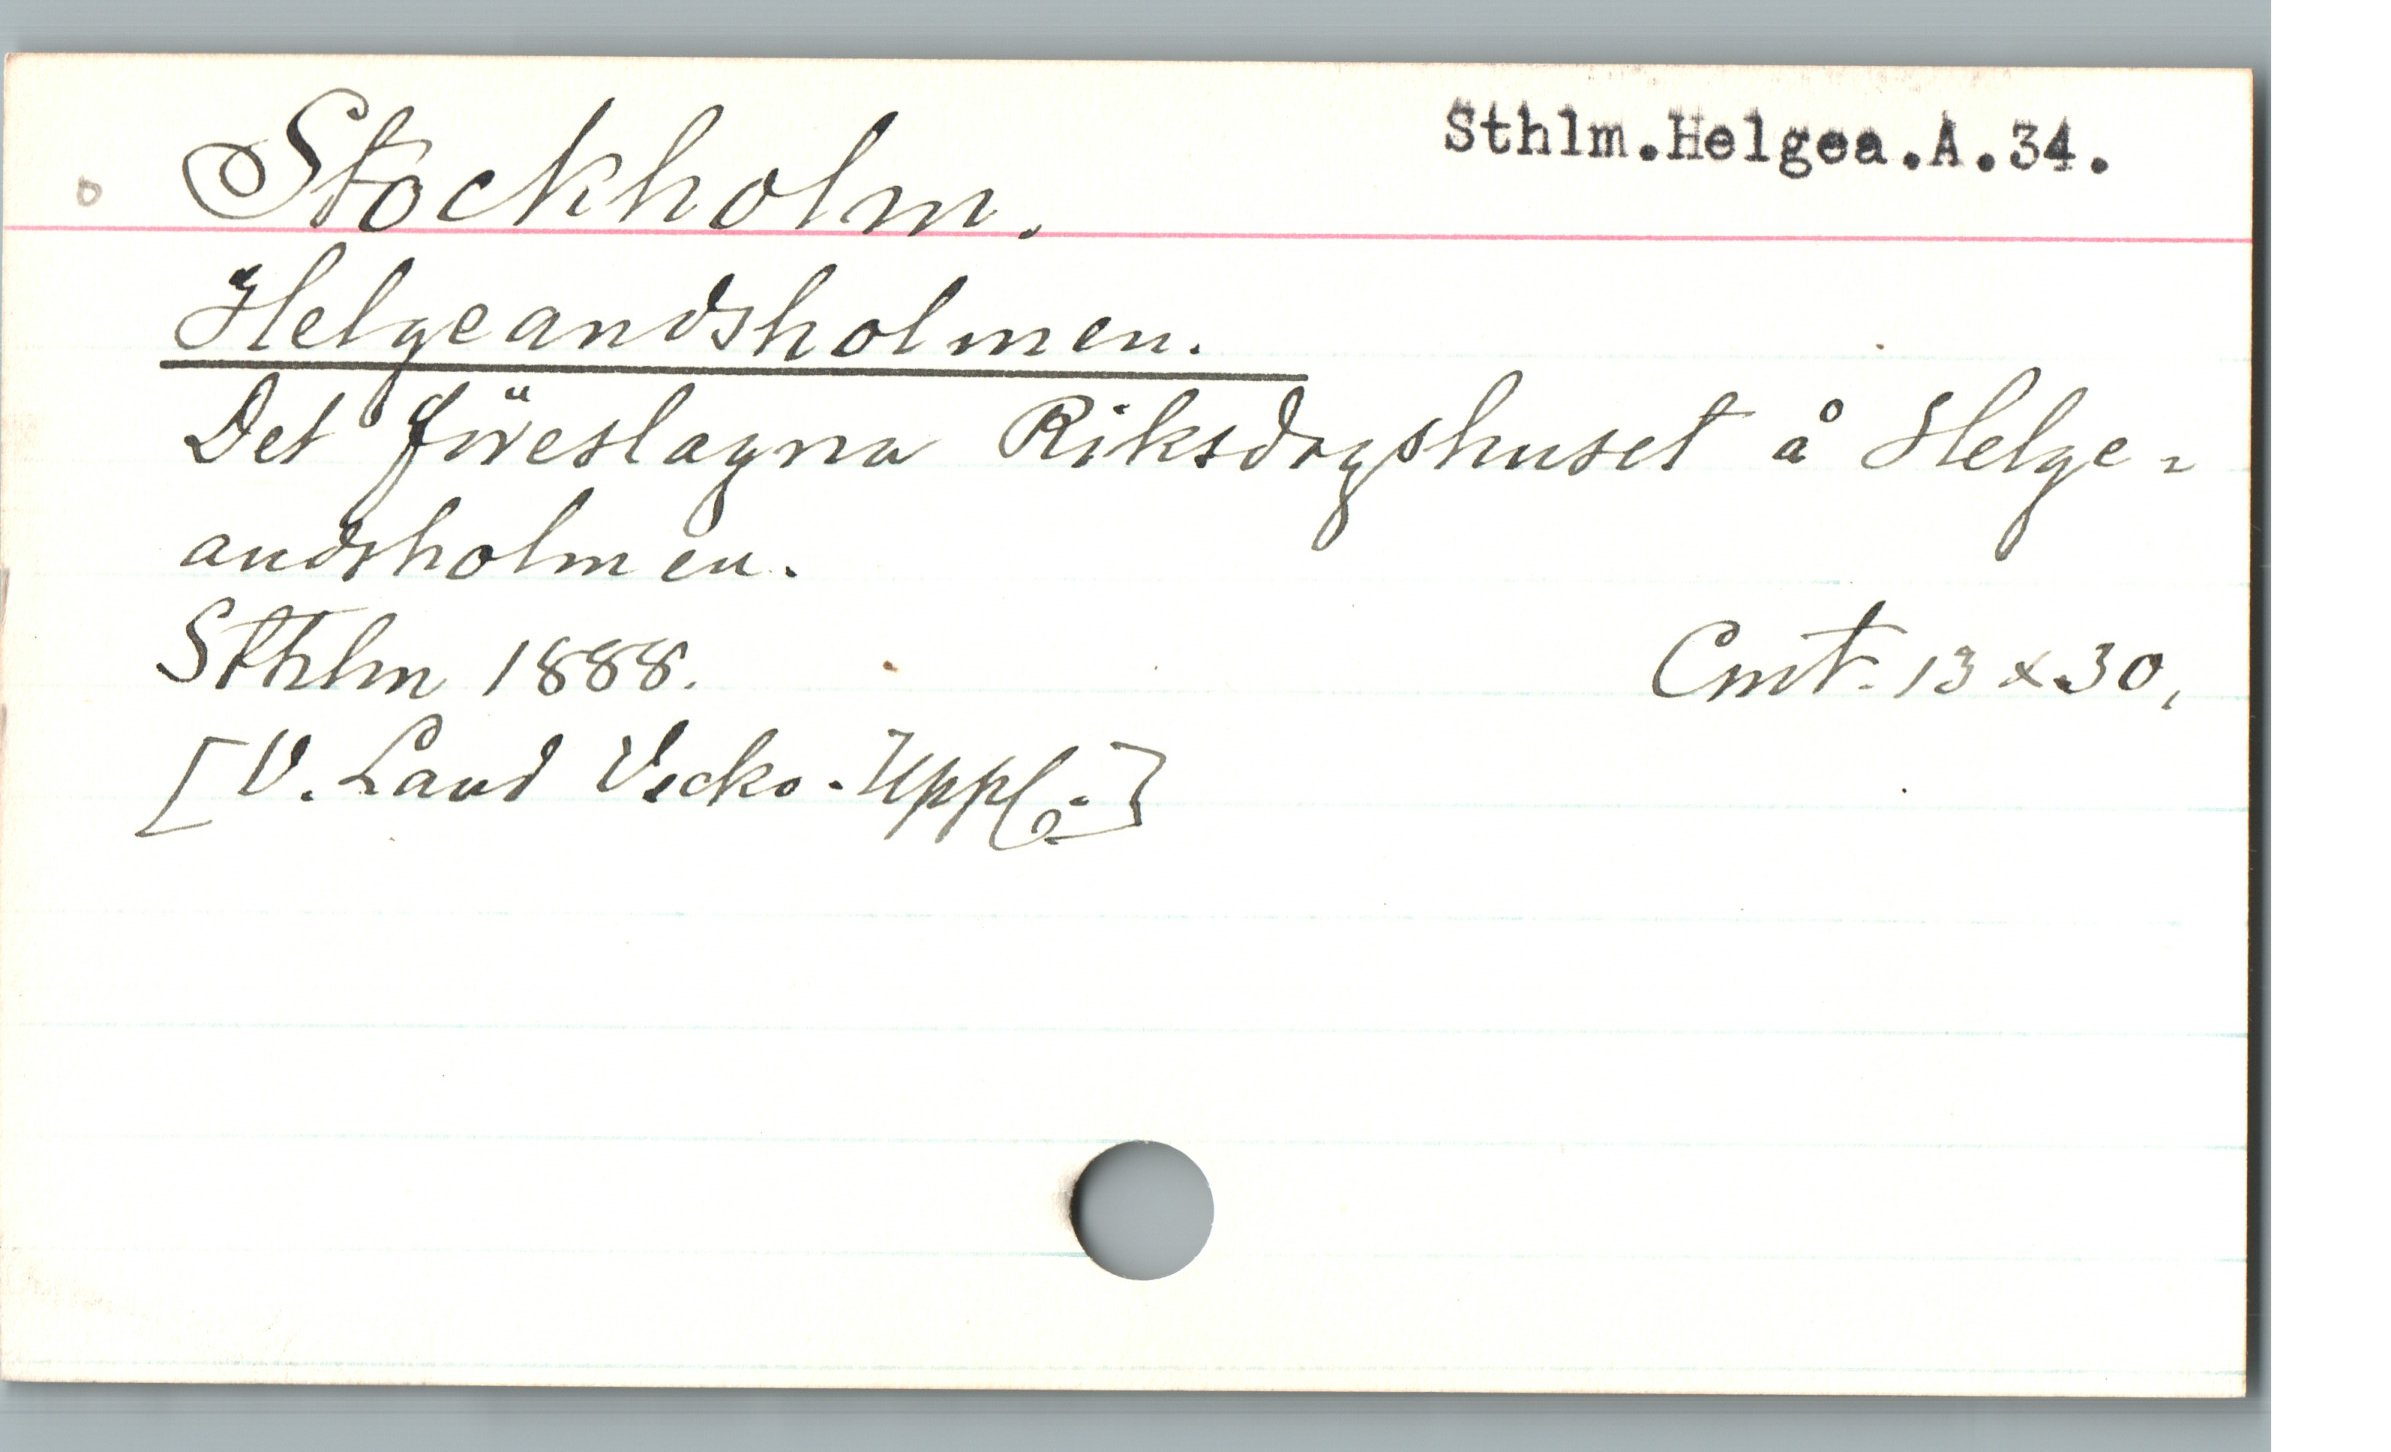 Sthlm.Helgea.A.34.
Stockholm.
Helgeandsholmen.
Det föreslagna Riksdagshuset å Helge-
andsholmen.
Sthlm 1888. Cmt. 13 x 30,
[V. Land Vecko-Uppl.]